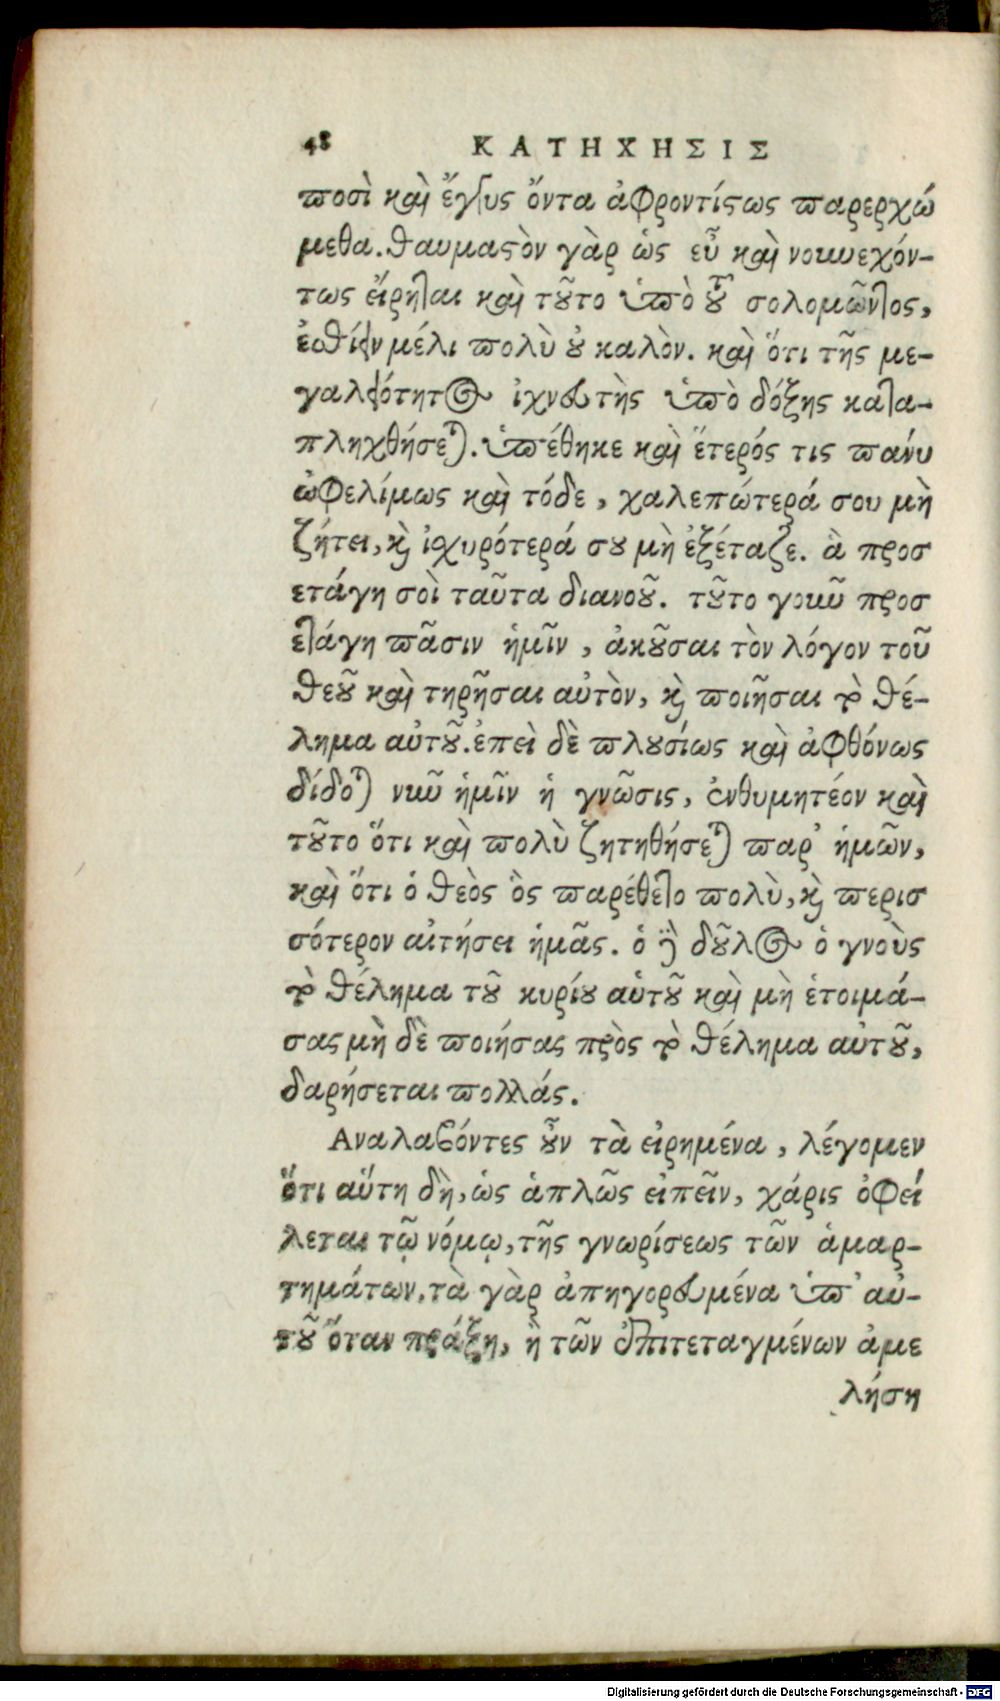 48 ΚΑΤΗΧΗΣΙΣ
ποσὶ καὶ ἔγγυς ὄντα ἀφροντίστως παρερχώ
μεθα. θαυμαστὸν γὰρ ὡς εὖ καὶ νουνεχόν-
τως εἴρηται καὶ τοῦτο ὑπὸ τοῦ σολομῶντος,
ἐσθίειν μέλι πολὺ οὐ καλὸν. καὶ ὅτι τῆς με-
γαλειότητος ἰχνευτὴς ὑπὸ δόξης κατα-
πληχθήσεται. ὑπέθηκε καὶ ἕτερός τις πάνυ
ὠφελίμως καὶ τόδε, χαλεπώτερά σου μὴ
ζήτει, καὶ ἰχυρότερά σου μὴ ἐξέταζε. ἃ προσ
ετάγη σοὶ ταῦτα διανοοῦ. τοῦτο γοῦν προσ
ετάγη πᾶσιν ἡμῖν, ἀκοῦσαι τὸν λόγον τοῦ
θεοῦ καὶ τηρῆσαι αὐτὸν, καὶ ποιῆσαι τὸ θέ-
λημα αὐτοῦ. ἐπεὶ δὲ πλουσίως καὶ ἀφθόνως
δίδοται νῦν ἡμῖν ἡ γνῶσις, ἐνθυμητέον καὶ
τοῦτο ὅτι καὶ πολὺ ζητηθήσεται παρ' ἡμῶν,
καὶ ὅτι ὁ θεὸς ὃς παρέθετο πολὺ, καὶ περισ
σότερον αἰτήσει ἡμᾶς. ὁ γὰρ δοῦλος ὁ γνοὺς
τὸ θέλημα τοῦ κυρίου αὑτοῦ καὶ μὴ ἑτοιμά-
σας μὴ δὲ ποιήσας πρὸς τὸ θέλημα αὐτοῦ,
δαρήσεται πολλάς.
Αναλαβόντες οὖν τὰ εἰρημένα, λέγομεν
ὅτι αὕτη δὴ, ὡς ἁπλῶς εἰπεῖν, χάρις ὀφεί
λεται τῷ νόμῳ, τῆς γνωρίσεως τῶν ἁμαρ-
τημάτων, τὰ γὰρ ἀπηγορευμένα ὑπ' αὐ-
τοῦ ὅταν πράξη, ἢ τῶν ἐπιτεταγμένων ἀμε
λήση
Digitalisierung gefördert durch die Deutsche Forschungsgemeinschaft - DFG